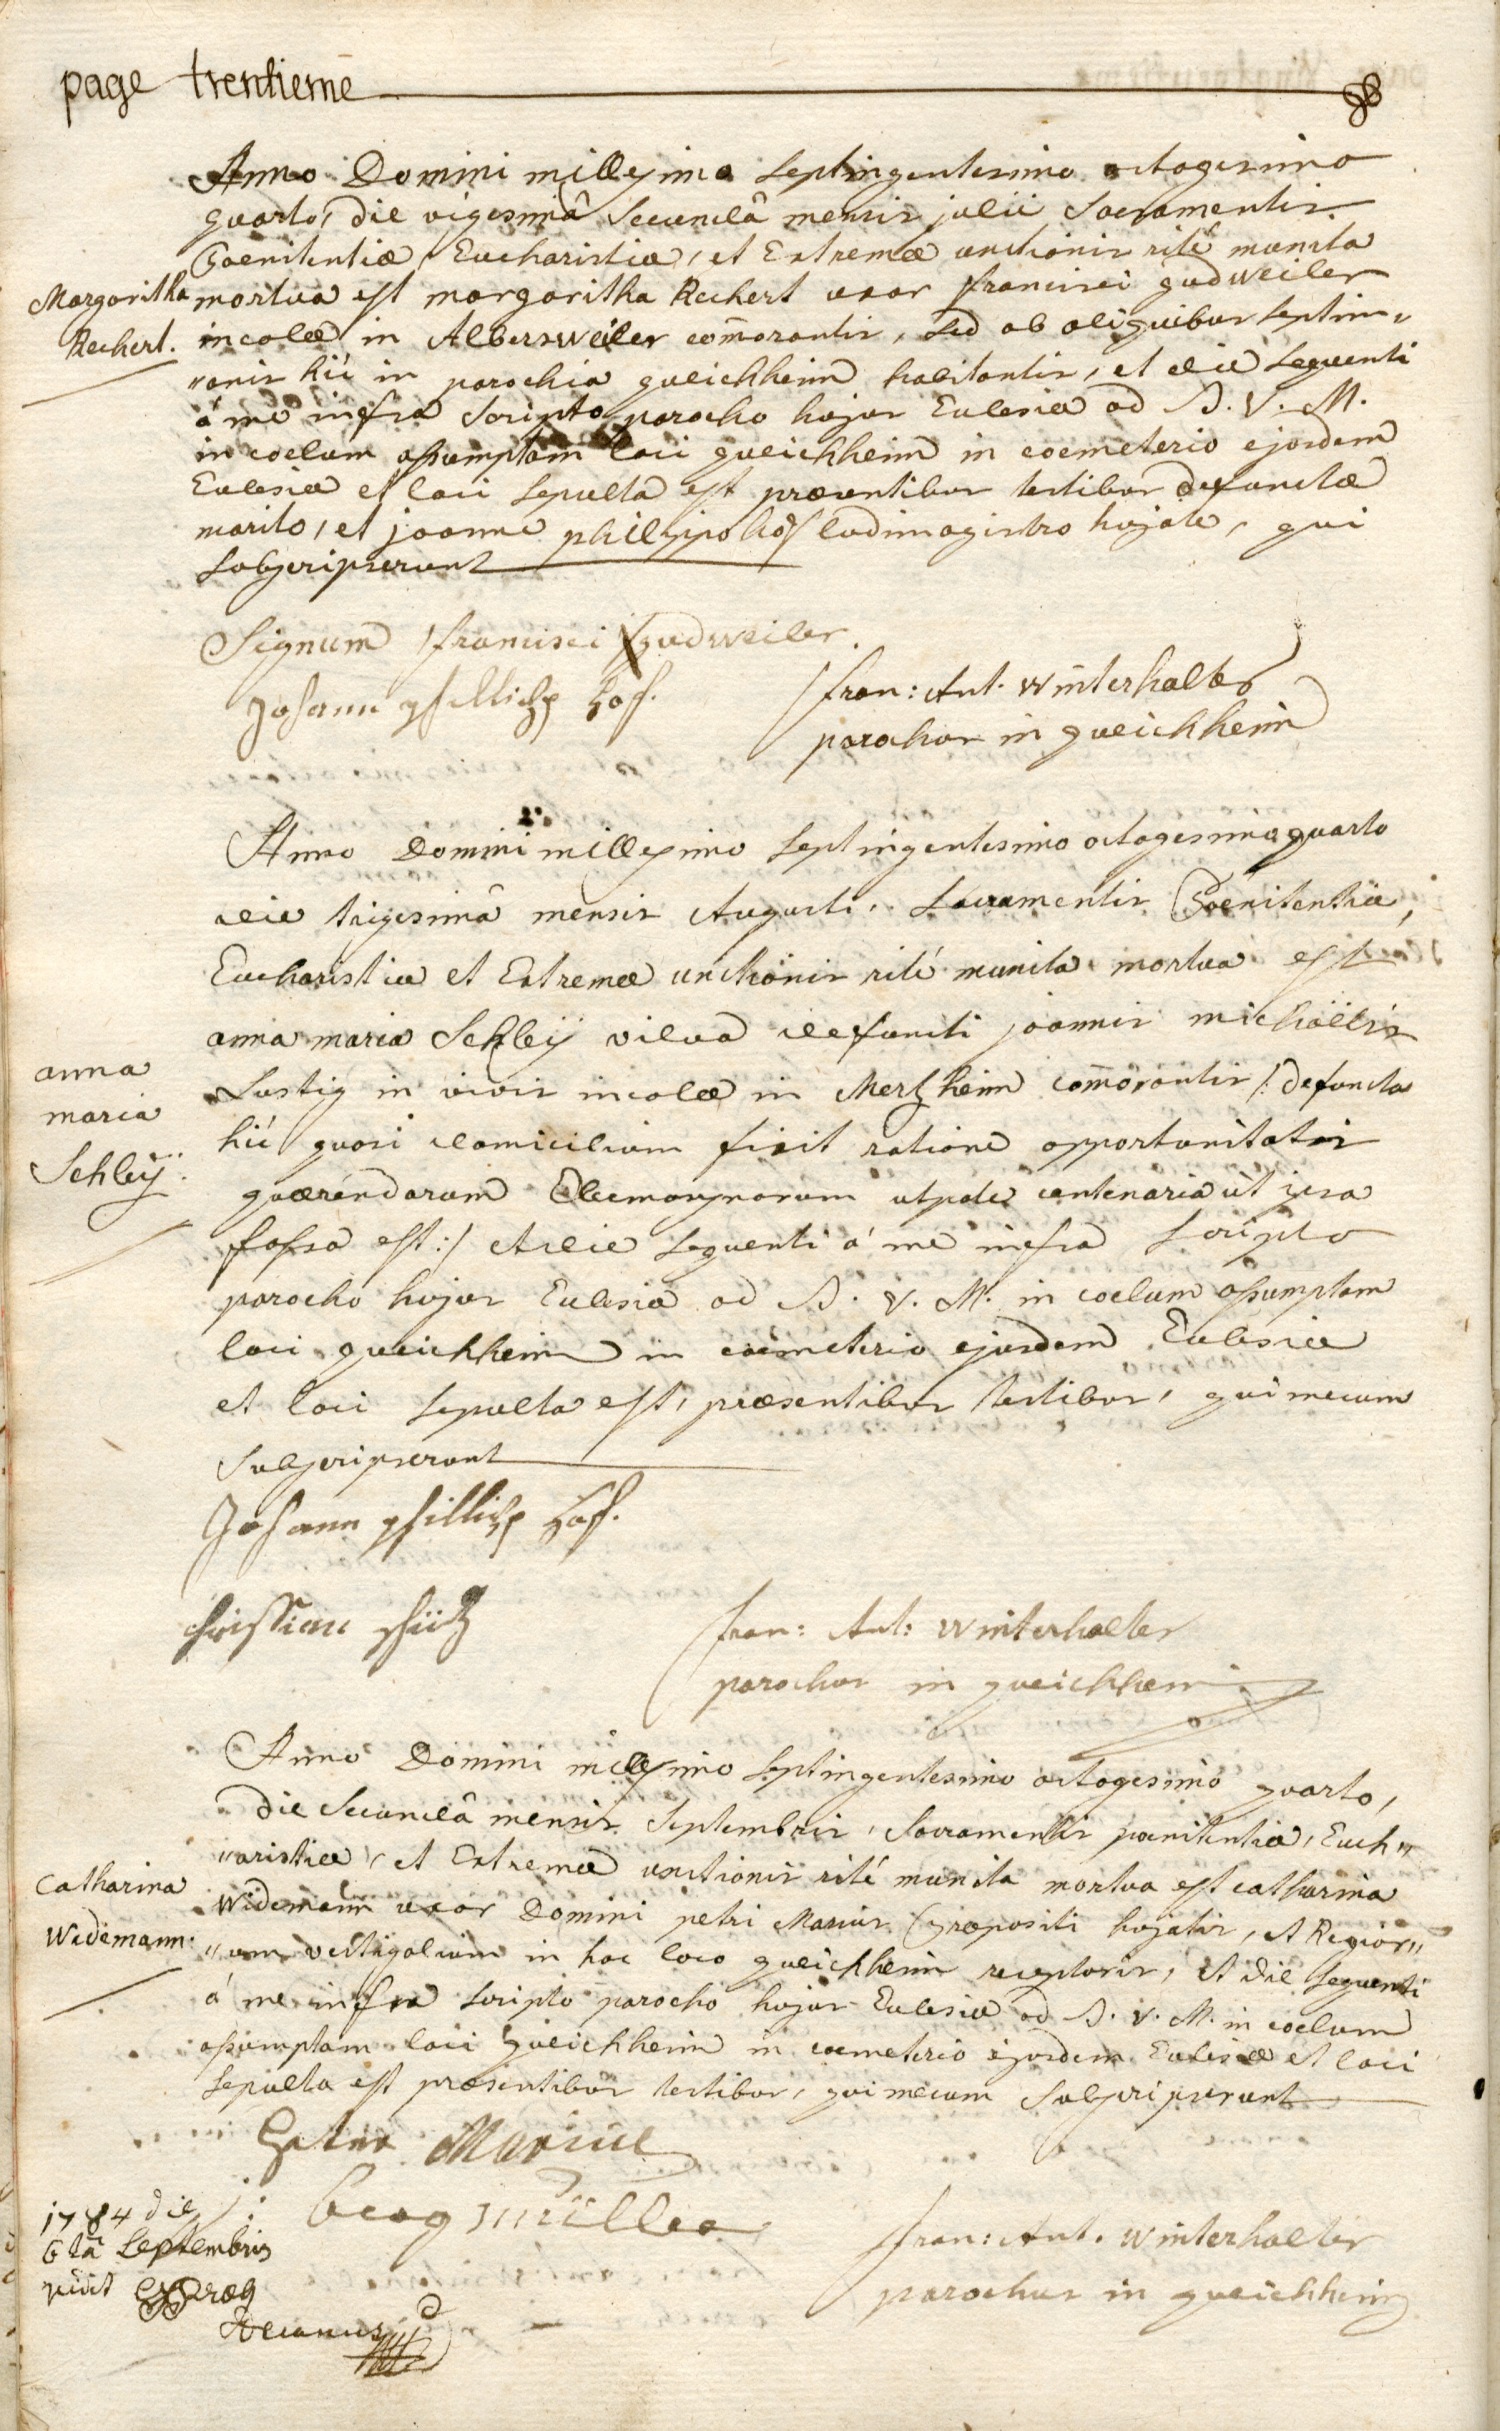 page trentieme
Anno Domini millesimo septingentesimo octogesimo
quarto, die vigesimâ secundâ mensis julii Sacramentis
Poenitentiæ, Eucharistiæ, et Extremæ unctionis rité munita
Margaritha
Rechert.
mortua est margaritha Rechert uxor francisci gudweiler
incolæ in Albersweiler com̄orantis, sed ab aliquibus septim„
„anis hic in parochia queichheim habitantis, et die sequenti
á me infra scripto parocho hujus Eclesiæ ad B. V. M.
in coelum assumptam loci queichheim in coemeterio ejusdem
Eclesiæ et loci sepulta est præsentibus testibus defunctæ
marito, et joanne philippo hoff ludimagistro hujate, qui
subscripserunt
Signum francisci gudweiler.
Johann philliph Hoff.
fran: Ant. Winterhalter
parochus in queichheim
Anno Domini millesimo septingentesimo octogesimo quarto
die trigesimâ mensis Augusti, Sacramentis Poenitentiæ,
Eucharistiæ et Extremæ unctionis rité munita mortua est
anna maria Schleÿ vidua defuncti joannis michäelis
anna
maria
Schleÿ.
Lustig in vivis incolæ in Mertzheim com̄orantis /: defuncta
hic quasi domicilium fixit ratione opportunitatis
quærendarum Eleemosynarum utpote centenaria ut ipsa
fassa est :/ et die sequenti á me infra scripto
parocho hujus Eclesiæ ad B. V. M. in coelum assumptam
loci queichheim in coemeterio ejusdem Eclesiæ
et loci sepulta est, præsentibus testibus, qui mecum
subscripserunt
Johann philliph Hoff.
christian
fran: Ant: Winterhalter
parochus in queichheim
Anno Domini millesimo septingentesimo octogesimo quarto,
die secundâ mensis Septembris, Sacramentis poenitentiæ, Euch„
„aristiæ, et Extremæ unctionis rité munita mortua est catharina
Catharina
Widemann.
Widemann uxor Domini petri Marius præpositi hujatis, et Regior„
„um vectigalium in hoc loco queichheim receptoris, et die sequenti
á me infra scripto parocho hujus Eclesiæ ad B. V. M. in coelum
assumptam loci queichheim in coemeterio ejusdem Eclesiæ et loci
sepulta est præsentibus testibus, qui mecum subscripserunt
Petter Marius
Georg Müller
1784 die
6tâ Septembris
Decanus
fran: Ant. Winterhalter
parochus in queichheim